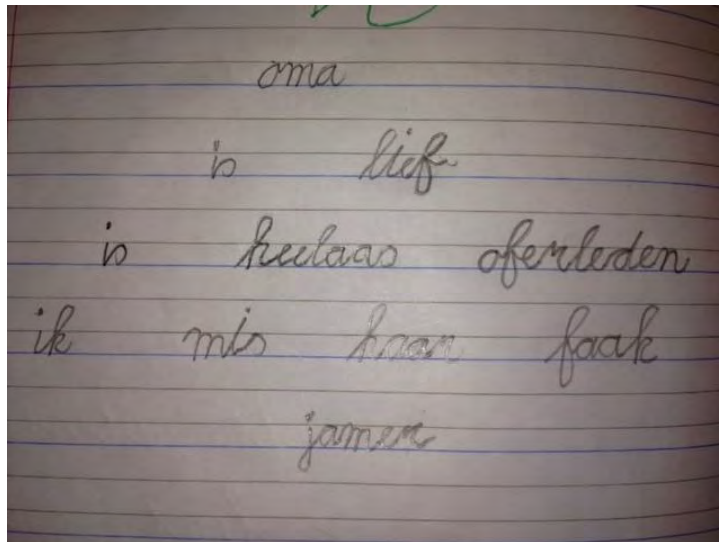 oma
is lief
is heelaas oferleden
ik mis haar faak
jamer